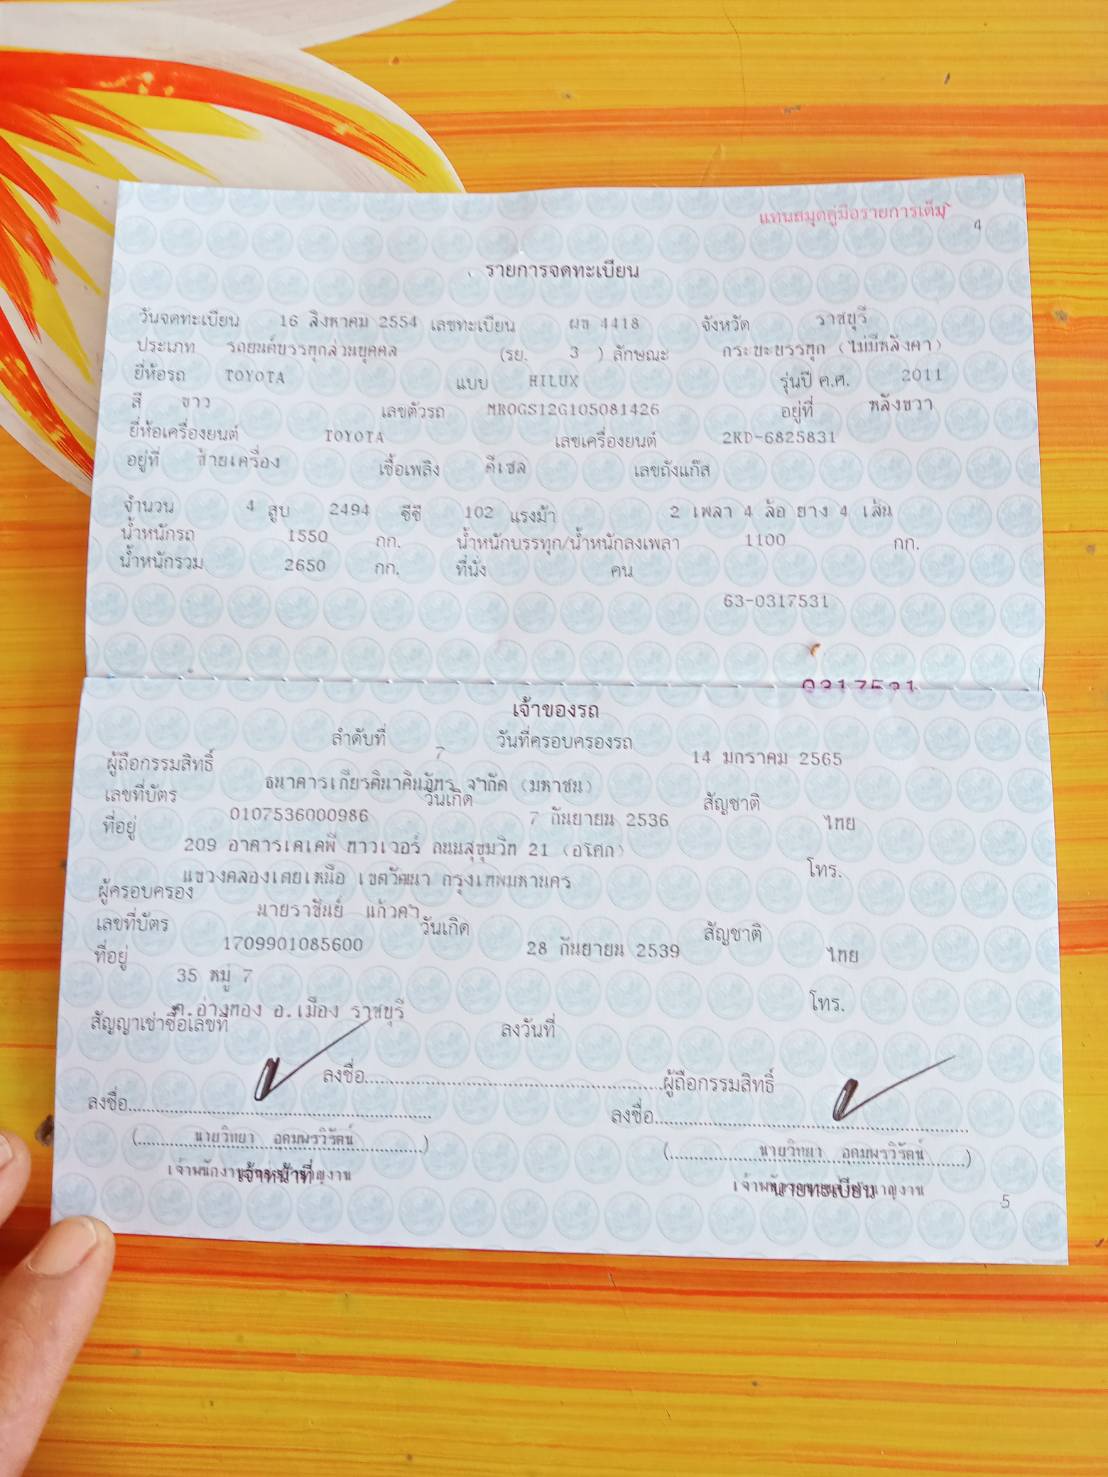 แทนสมุดคู่มือรายการเต็ม
4
รายการจดทะเบียน
วันจดทะเบียน 16 สิงหาคม 2554 เลขทะเบียน ผฉ 4418 จังหวัด ราชบุรี
ประเภท รถยนต์บรรทุกส่วนบุคคล (รย. 3 ) ลักษณะ กระบะบรรทุก (ไม่มีหลังคา)
ยี่ห้อรถ TOYOTA แบบ HILUX รุ่นปี ค.ศ. 2011
สี ขาว เลขตัวรถ MR0GS12G105081426 อยู่ที่ หลังขวา
ยี่ห้อเครื่องยนต์ TOYOTA เลขเครื่องยนต์ 2KD-6825831
อยู่ที่ ซ้ายเครื่อง เชื้อเพลิง ดีเซล เลขถังแก๊ส
จำนวน 4 สูบ 2494 ซีซี 102 แรงม้า 2 เพลา 4 ล้อ ยาง 4 เส้น
น้ำหนักรถ 1550 กก. น้ำหนักบรรทุก/น้ำหนักลงเพลา 1100 กก.
น้ำหนักรวม 2650 กก. ที่นั่ง คน
63-0317531
0317531
เจ้าของรถ
ลำดับที่ 7 วันที่ครอบครองรถ 14 มกราคม 2565
ผู้ถือกรรมสิทธิ์ ธนาคารเกียรตินาคินภัทร จำกัด (มหาชน)
เลขที่บัตร 0107536000986 วันเกิด 7 กันยายน 2536 สัญชาติ ไทย
ที่อยู่ 209 อาคารเคเคพี ทาวเวอร์ ถนนสุขุมวิท 21 (อโศก)
แขวงคลองเตยเหนือ เขตวัฒนา กรุงเทพมหานคร โทร.
ผู้ครอบครอง นายราชันย์ แก้วคำ
เลขที่บัตร 1709901085600 วันเกิด 28 กันยายน 2539 สัญชาติ ไทย
ที่อยู่ 35 หมู่ 7
ต.อ่างทอง อ.เมือง ราชบุรี โทร.
สัญญาเช่าซื้อเลขที่ ลงวันที่
ลงชื่อ ผู้ถือกรรมสิทธิ์
ลงชื่อ ลงชื่อ
(นายวิทยา อุดมพรวิรัตน์) (นายวิทยา อุดมพรวิรัตน์)
เจ้าหน้าที่ นายทะเบียน
5